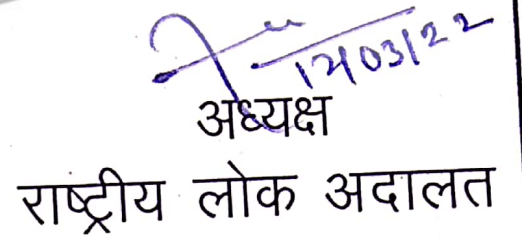 12/03/22
अध्यक्ष
राष्ट्रीय लोक अदालत